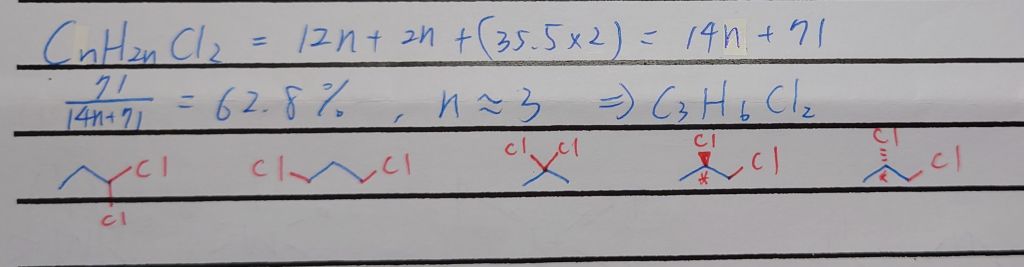 CnH2nCl2 = 12n + 2n + (35.5×2) = 14n + 71
71/14n+71 = 62.8%, n ≈ 3 ⇒ C3H6Cl2
Cl Cl Cl Cl Cl Cl Cl * Cl Cl * Cl